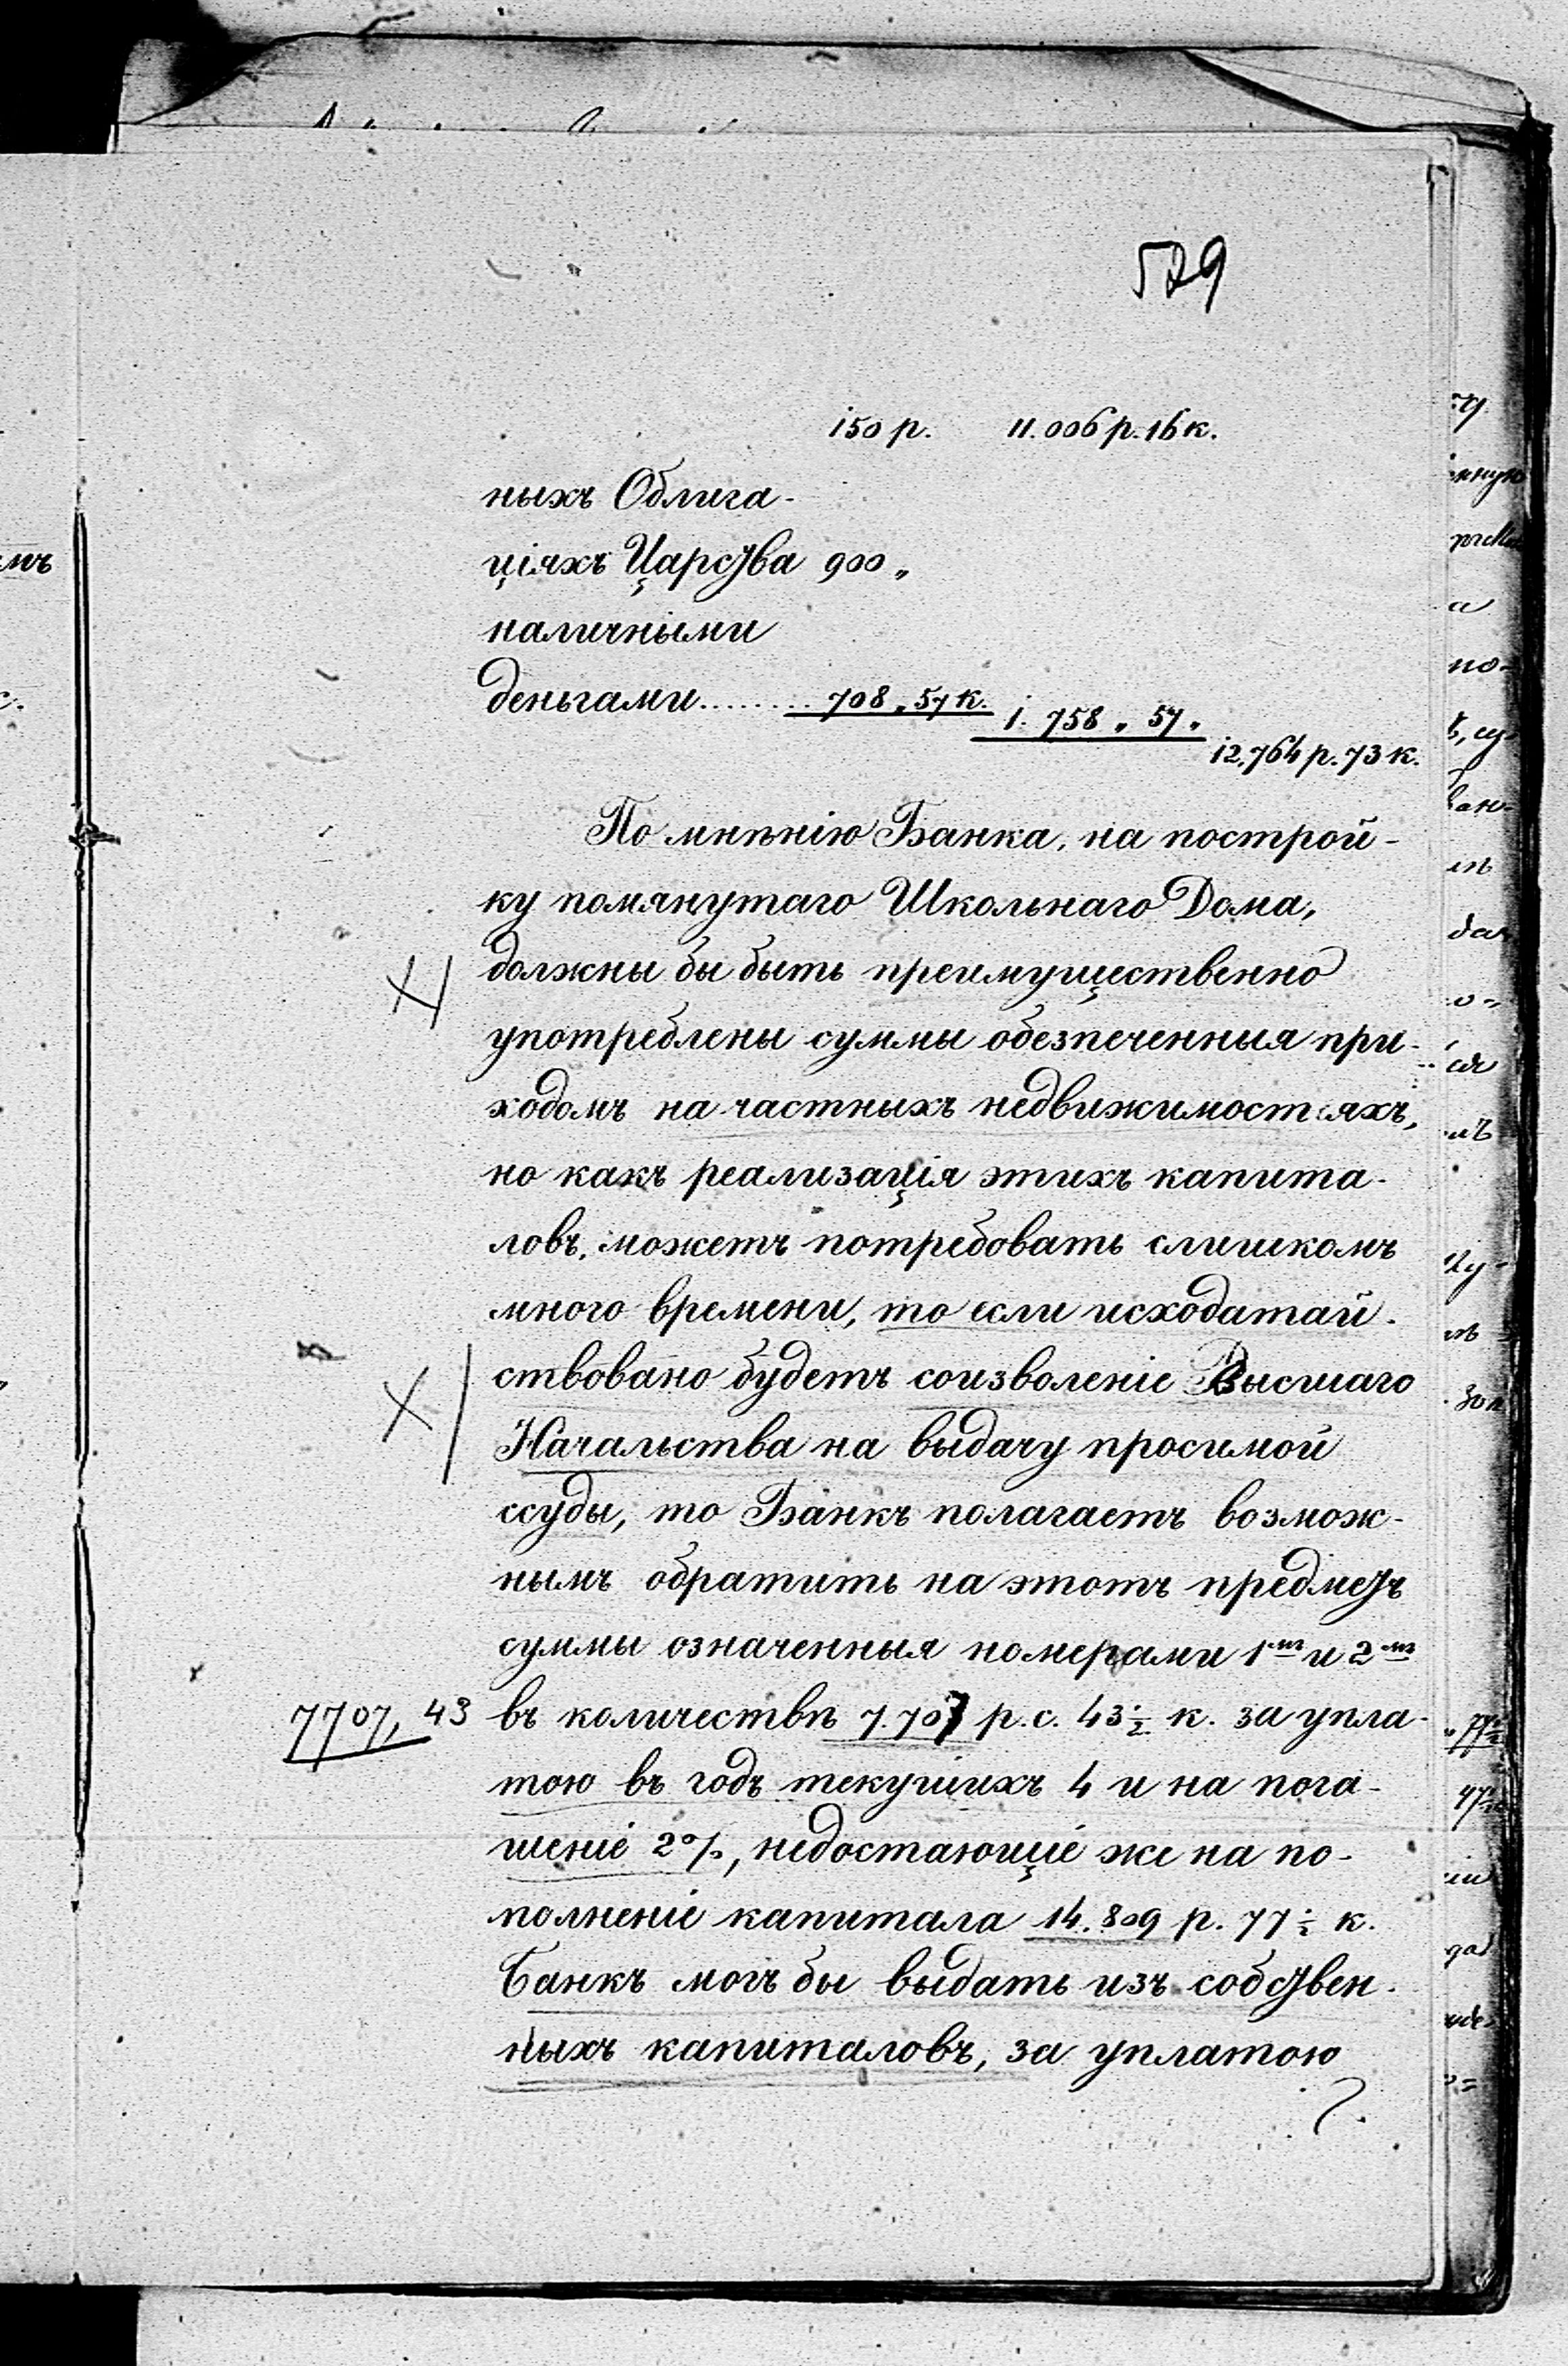 529
150 р. 11.006 р. 16 к.
ныхъ Облига-
ціяхъ Царства 900 „
наличными
деньгами........ 708 „ 57 к. 1. 758 „ 57 „
12.764 р. 73 к.
По мнѣнію Банка, на построй-
ку помянутаго Школьнаго Дома,
должны бы быть преимущественно
употреблены суммы обезпеченныя при-
ходомъ на частныхъ недвижимостяхъ,
но какъ реализація этихъ капита-
ловъ, можетъ потребовать слишкомъ
много времени, то если исходатай-
ствовано будетъ соизволеніе Высшаго
Начальства на выдачу просимой
ссуды, то Банкъ полагаетъ возмож-
нымъ обратить на этотъ предметъ
суммы означенныя номерами 1мъ и 2мъ
7707, 43 въ количествѣ 7.707 р. с. 43 1/2 к. за упла-
тою въ годъ текущихъ 4 и на пога-
шеніе 2%, недостающіе же на по-
полненіе капитала 14.809 р. 77 1/2 к.
Банкъ могъ бы выдать изъ собствен-
ныхъ капиталовъ, за уплатою